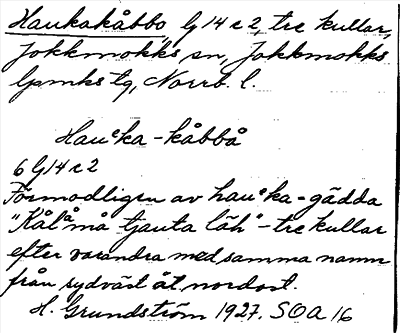 Haukakåbbo lj 14 c 2, tre kullar,
Jokkmokks sn, Jokkmokks
lpmks tg, Norrb. l.
Hauᵉka-kåbbå
6 lj 14 c 2
Förmodligen av hauᵉka = gädda
"Kålåmå tjauta läh" - tre kullar
efter varandra med samma namn
från sydväst åt nordost.
H. Grundström 1927. SOA 16